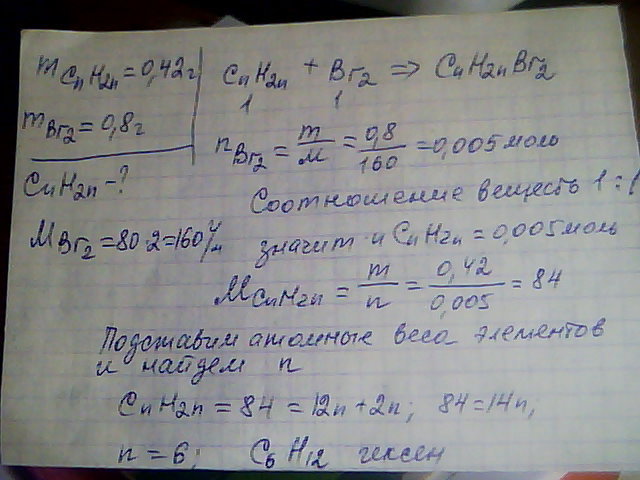 m CnH2n = 0,42г
mBr2 = 0,8г
CnH2n - ?
MBr2 = 80·2 = 160 г/м
CnH2n + Br2 => CnH2nBr2
1 1
nBr2 = m/M = 0,8/160 = 0,005 моль
Соотношение веществ 1:1
значит и CnH2n = 0,005 моль
MCnH2n = m/n = 0,42/0,005 = 84
Подставим атомные веса элементов
и найдем n
CnH2n = 84 = 12n + 2n; 84 = 14n,
n = 6; C6H12 гексен